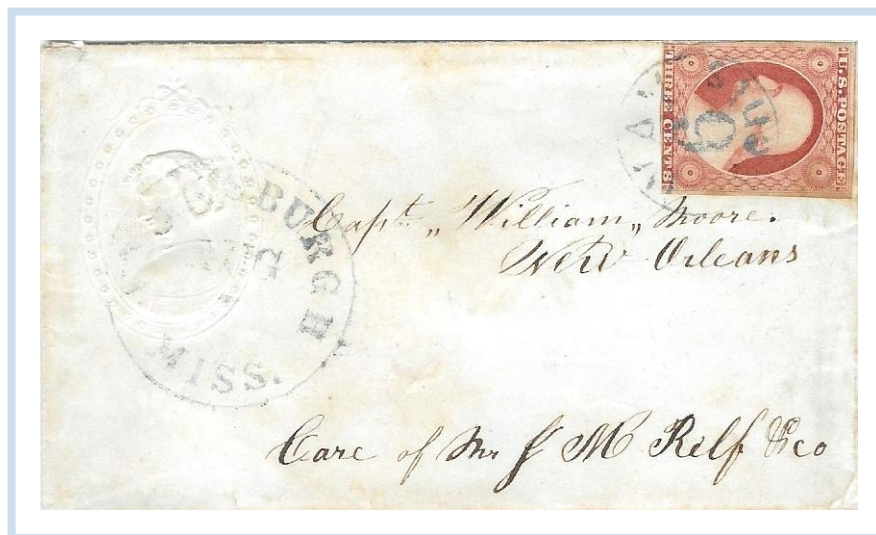 U.S. POSTAGE
THREE CENTS
9
AUG
BURGH
MISS.
Capt. „William„ Moore.
New Orleans
Care of Mr J M Relf &co